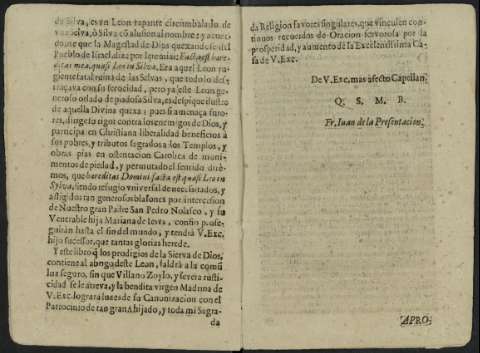 de Silva, es vn Leon rapante circumbalado de
vna Silva, ò Silva cō alusion al nombre; y acuer-
dome que la Magestad de Dios quexandose del
Pueblo de Israel, dize por Ieremias: Facta est hære
ditas mea, quasi Leo in Silva. Era aquel Leon ru-
giente fatal ruina de las Silvas, que todo lo des-
traçava con su ferocidad, pero ya este Leon gene-
roso orlado de piadosa Silva, es despique ilustre
de aquella Divina quexa: pues si amenaça furo-
res, dirige lo rigor contra los enemigos de Dios, y
participa en Christiana liberalidad beneficios à
sus pobres, y tributos sagrados à los Templos, y
obras pias en ostentacion Catolica de moni-
mentos de piedad, y permutado el sentido diré-
mos, que hæreditas Domini facta est quasi Leo in
Sylva, siendo refugio vniversal de necesitados, y
afligidos tan generosos blasones por intercesion
de Nuestro gran Padre San Pedro Nolasco, y su
Venerable hija Mariana de Iesvs, confio prose-
guirán hasta el fin del mundo, y tendrá V. Exc.
hijo sucessor, que tantas glorias herede.
Y este libro q̄ los prodigios de la Sierva de Dios,
contiene al abrigo deste Leon, saldrà à la comũ
luz seguro, sin que Villano Zoylo, y severa rusti-
cidad se le atreva, y la bendita virgen Madrina de
V. Exc. lograrà luzes de su Canonizacion con el
Patrocinio de tan grande Ahijado, y toda mi Sagra-
da
da Religion favores singulares, que vinculen con-
tinuos recuerdos de Oracion fervorosa por la
prosperidad, y aumento de la Excelentissima Ca-
sa de V. Exc.
De V. Exc. mas afecto Capellan.
Q. S. M. B.
Fr. Iuan de la Presentacion.
APRO-